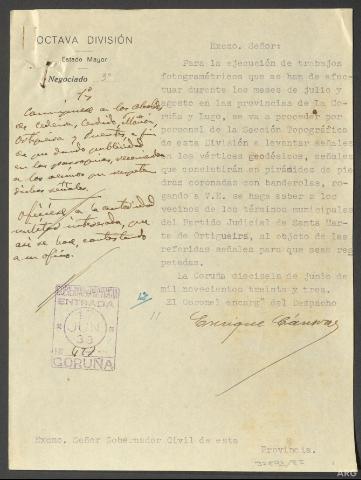 OCTAVA DIVISIÓN
Estado Mayor
Negociado 3º
1º
Comuníquese a los Alcaldes
de Cedeira, Cerdido, Mañón,
Ortigueira y Puentes, a fin
de que dando publicidad
en las parroquias, recomienden
a los vecinos que respeten
dichas señales.
Ofíciese a la autoridad
militar interesada, que
así se hace, contestando
a su oficio.
ENTRADA
JUN
33
CORUÑA
Excmo. Señor:
Para la ejecución de trabajos
fotogramétricos que se han de efec-
tuar durante los meses de julio y
agosto en las provincias de La Co-
ruña y Lugo, se va a proceder por
personal de la Sección Topográfica
de esta División a levantar señales
en los vértices geodésicos, señales
que consistirán en pirámides de pie-
dras coronadas con banderolas, ro-
gando a V.E. se haga saber a los
vecinos de los términos municipales
del Partido Judicial de Santa Mar-
ta de Ortigueira, al objeto de las
referidas señales para que sean res-
petadas.
La Coruña dieciseis de junio de
mil novecientos treinta y tres.
El Coronel encargº del Despacho
Enrique Cánovas
Excmo. Señor Gobernador Civil de esta Provincia.
ARG